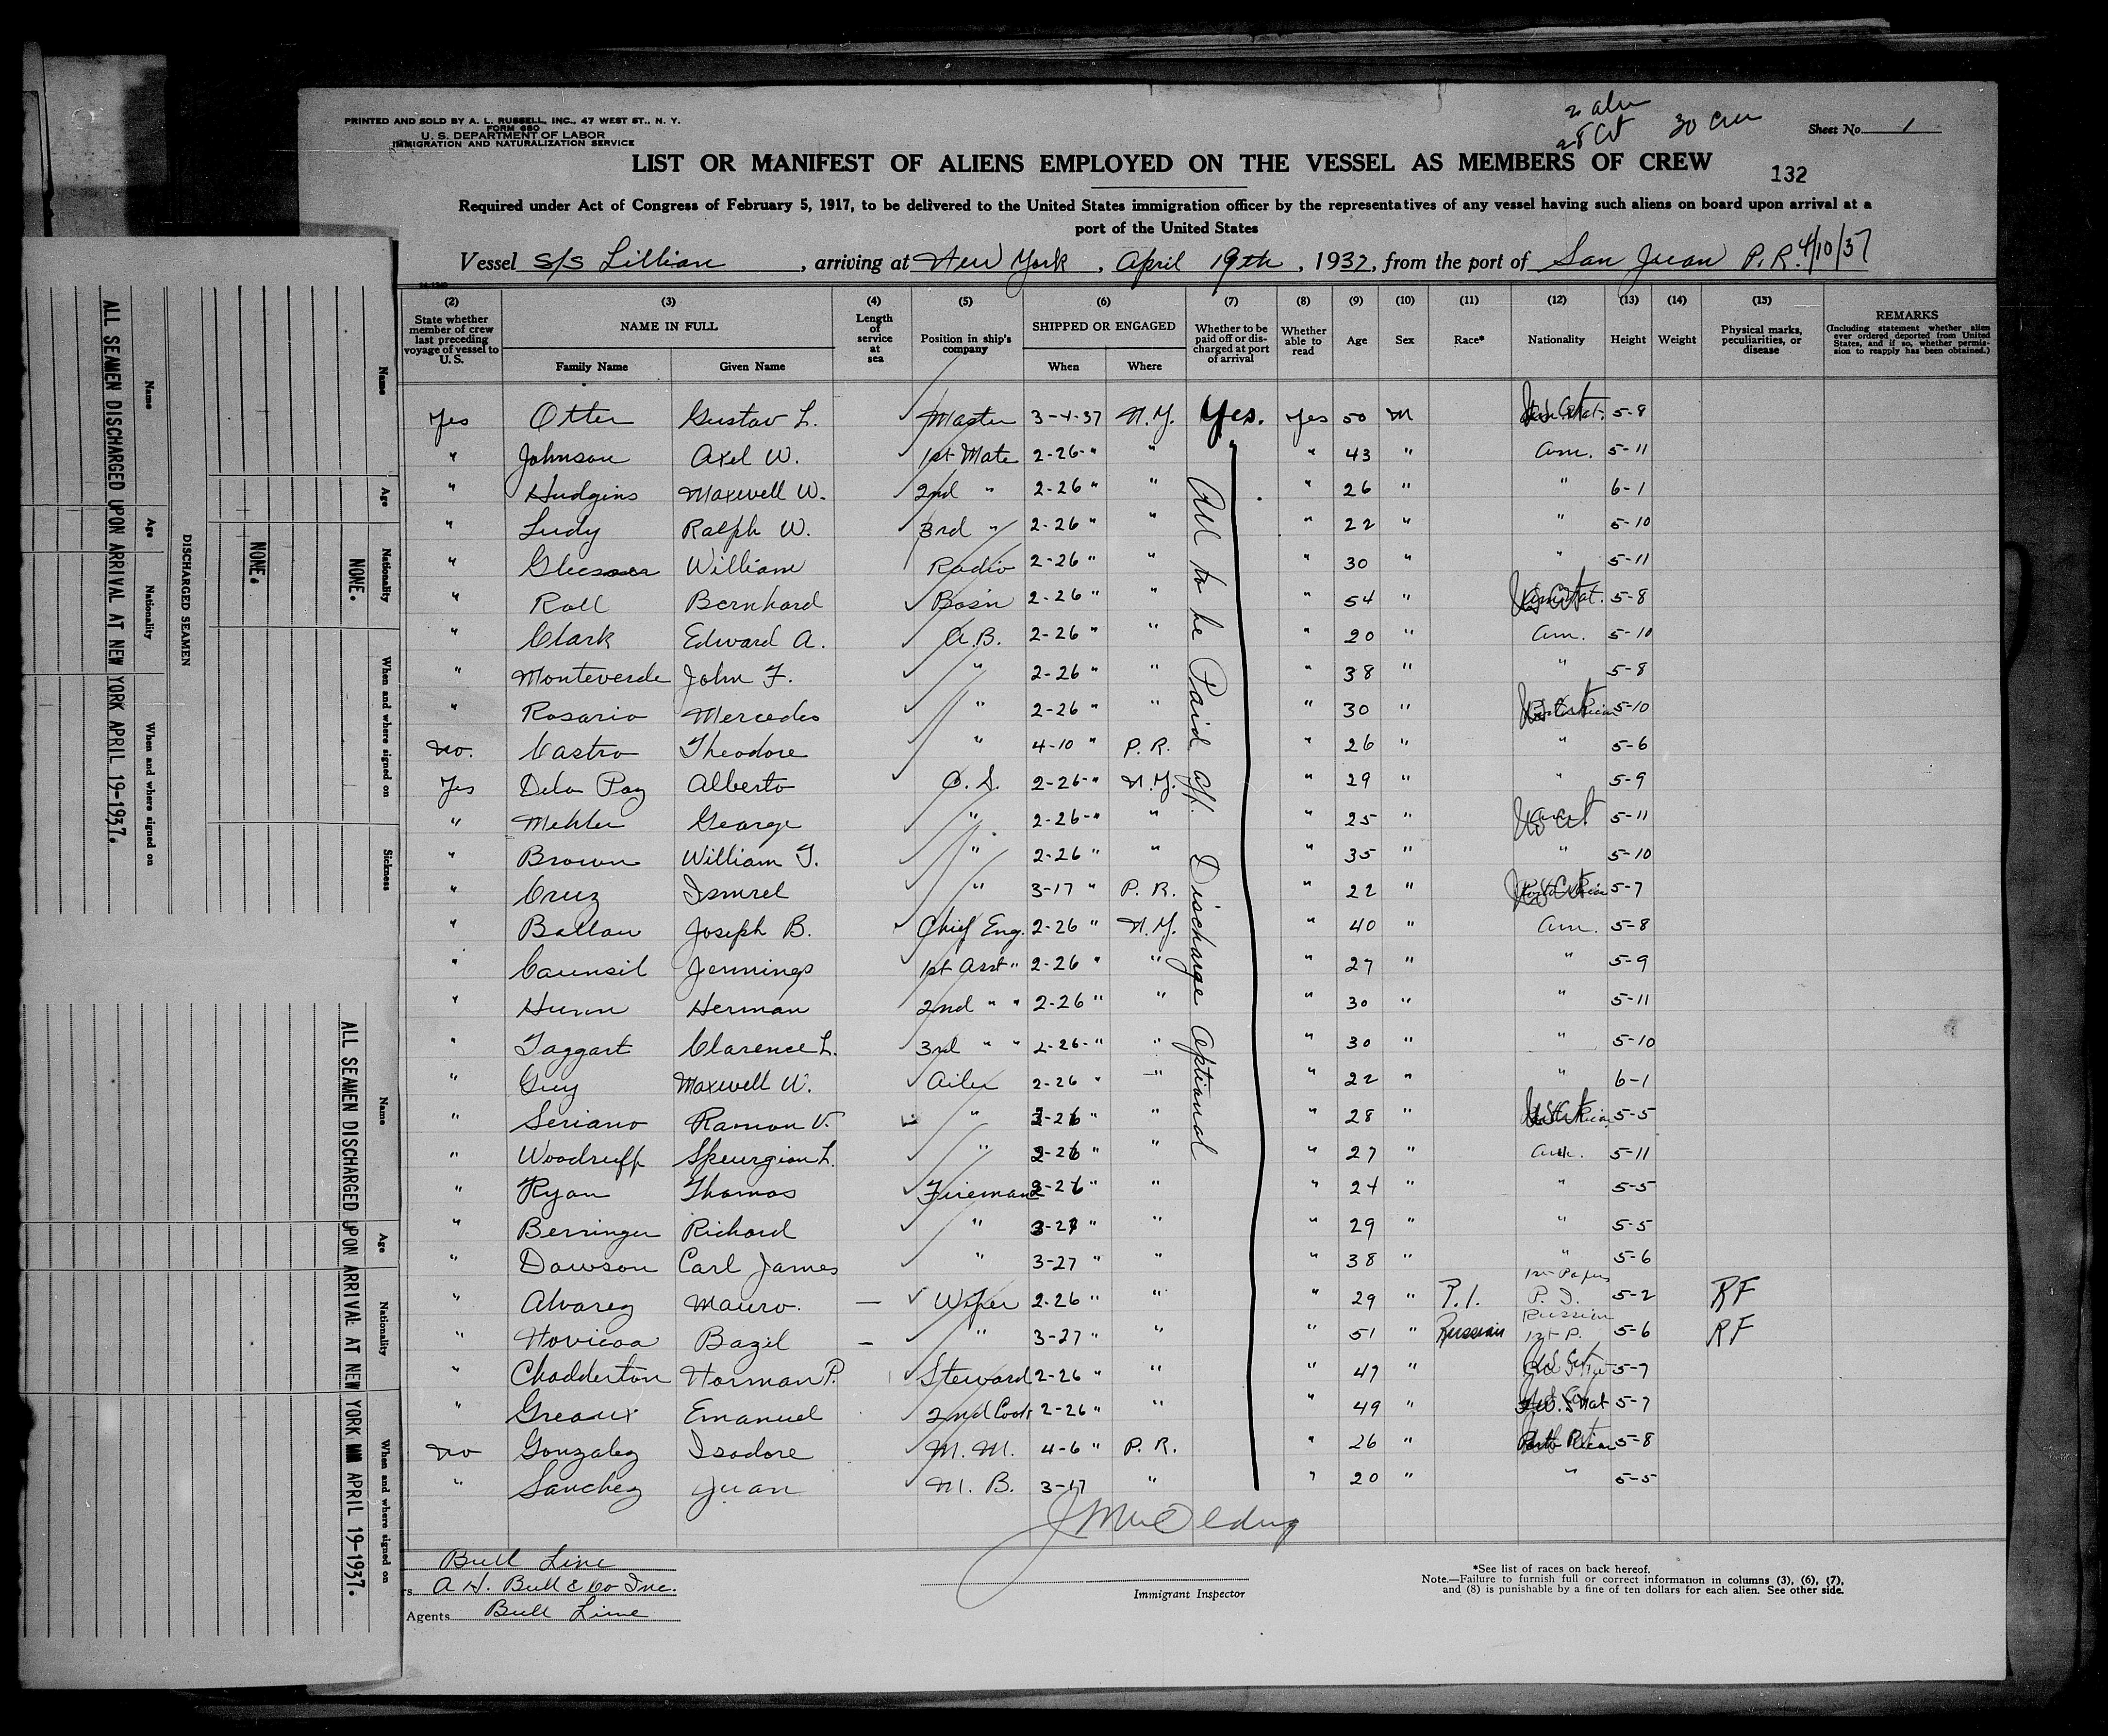 PRINTED AND SOLD BY A. L. RUSSELL, INC., 47 WEST ST., N. Y.
FORM 680
U. S. DEPARTMENT OF LABOR
IMMIGRATION AND NATURALIZATION SERVICE
30 Crew
Sheet No. 1
LIST OR MANIFEST OF ALIENS EMPLOYED ON THE VESSEL AS MEMBERS OF CREW
132
Required under Act of Congress of February 5, 1917, to be delivered to the United States immigration officer by the representatives of any vessel having such aliens on board upon arrival at a
port of the United States
Vessel S/S Lillian, arriving at New York, April 19th, 1937, from the port of San Juan P.R. 4/10/37
(2) State whether member of crew last preceding voyage of vessel to U. S.
(3) NAME IN FULL Family Name Given Name
(4) Length of service at sea
(5) Position in ship's company
(6) SHIPPED OR ENGAGED When Where
(7) Whether to be paid off or discharged at port of arrival
(8) Whether able to read
(9) Age
(10) Sex
(11) Race*
(12) Nationality
(13) Height
(14) Weight
(15) Physical marks, peculiarities, or disease
REMARKS (Including statement whether alien ever ordered deported from United States, and if so, whether permission to reapply has been obtained.)
Yes Otter Gustav L. Master 3-4-37 N.Y. Yes. Yes 50 M 5-8
" Johnson Axel W. 1st Mate 2-26-" " " 43 " Am. 5-11
" Hudgins Maxwell W. 2nd " 2-26 " " " 26 " " 6-1
" Ludy Ralph W. 3rd " 2-26 " " " 22 " " 5-10
" William Radio 2-26 " " " 30 " " 5-11
" Roll Bernhard Bos'n 2-26 " " " 54 " 5-8
" Clark Edward A. A.B. 2-26 " " " 20 " Am. 5-10
" Monteverde John F. " 2-26 " " " 38 " " 5-8
" Rosario Mercedes " 2-26 " " " 30 " 5-10
No. Castro Theodore " 4-10 " P.R. " 26 " " 5-6
Yes Dela Paz Alberto O.S. 2-26-" N.Y. " 29 " " 5-9
" Mehler George " 2-26-" " " 25 " 5-11
" Brown William T. " 2-26 " " " 35 " " 5-10
" Cruz Ismrel " 3-17 " P.R. " 22 " 5-7
" Ballau Joseph B. Chief Eng. 2-26 " N.Y. " 40 " Am. 5-8
" Caunsil Jennings 1st Asst " 2-26 " " " 27 " " 5-9
" Herman 2nd " " 2-26 " " " 30 " " 5-11
" Taggart Clarence L. 3rd " " 2-26-" " " 30 " " 5-10
" Guy Maxwell W. Oiler 2-26 " " " 22 " " 6-1
" Seriano Ramon V. " 2-26 " " " 28 " 5-5
" Woodruff Spurgion L. " 2-26 " " " 27 " Am. 5-11
" Ryan Thomas Fireman 2-26 " " " 24 " " 5-5
" Berringer Richard " 3-27 " " " 29 " " 5-5
" Dawson Carl James " 3-27 " " " 38 " " 5-6
" Alvarez Mauro. — Wiper 2-26 " " " 29 " P.I. 1st Papers P.I. 5-2 RF
" Bazil — " 3-27 " " " 51 " Russian Russian 1st P. 5-6 RF
" Chadderton Norman P. Steward 2-26 " " " 47 " 5-7
" Greaux Emanuel 2nd Cook 2-26 " " " 49 " 5-7
No Gonzalez Isadore M.M. 4-6 " P.R. " 26 " Porto Rican 5-8
" Sanchez Juan M.B. 3-17 " " 20 " " 5-5
All to be Paid off. Discharge Optional
Bull Line
A.H. Bull & Co Inc.
Agents Bull Line
Immigrant Inspector
*See list of races on back hereof.
Note.—Failure to furnish full or correct information in columns (3), (6), (7),
and (8) is punishable by a fine of ten dollars for each alien. See other side.
Name Age Nationality When and where signed on Sickness
NONE.
NONE.
DISCHARGED SEAMEN
Name Age Nationality When and where signed on
ALL SEAMEN DISCHARGED UPON ARRIVAL AT NEW YORK APRIL 19-1937.
Name Age Nationality When and where signed on
ALL SEAMEN DISCHARGED UPON ARRIVAL AT NEW YORK APRIL 19-1937.